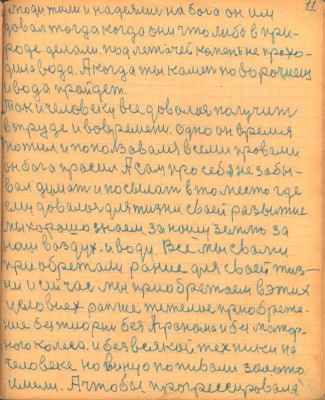 11
ходили и надеялись на бога он им
давал тогда когда они что либо в при-
роде делали. под лежачей камень не прохо-
дила вода. А когда ты камет поворочиеш
и вода пройдет.
Так и человеку все давалося получит
в труде и вовремени. одно он время
потом и попользовался всеми правами
он бога просил А сам про себя не забы-
вал думат и посылат в то место где
ему давалося для жизни своей развитие
мы хорошо знаем за нашу землю за
наш воздух. и воду. Все мы свами
приобретали ранше для своей жиз-
ни и сейчас мы приобретаем в этих
условиях ранше тяжелые приобрете-
ние без теории без Агранома и без матор-
ного колеса. и без всякой техники на
человеке но
имели. А чтобы прогрессировала